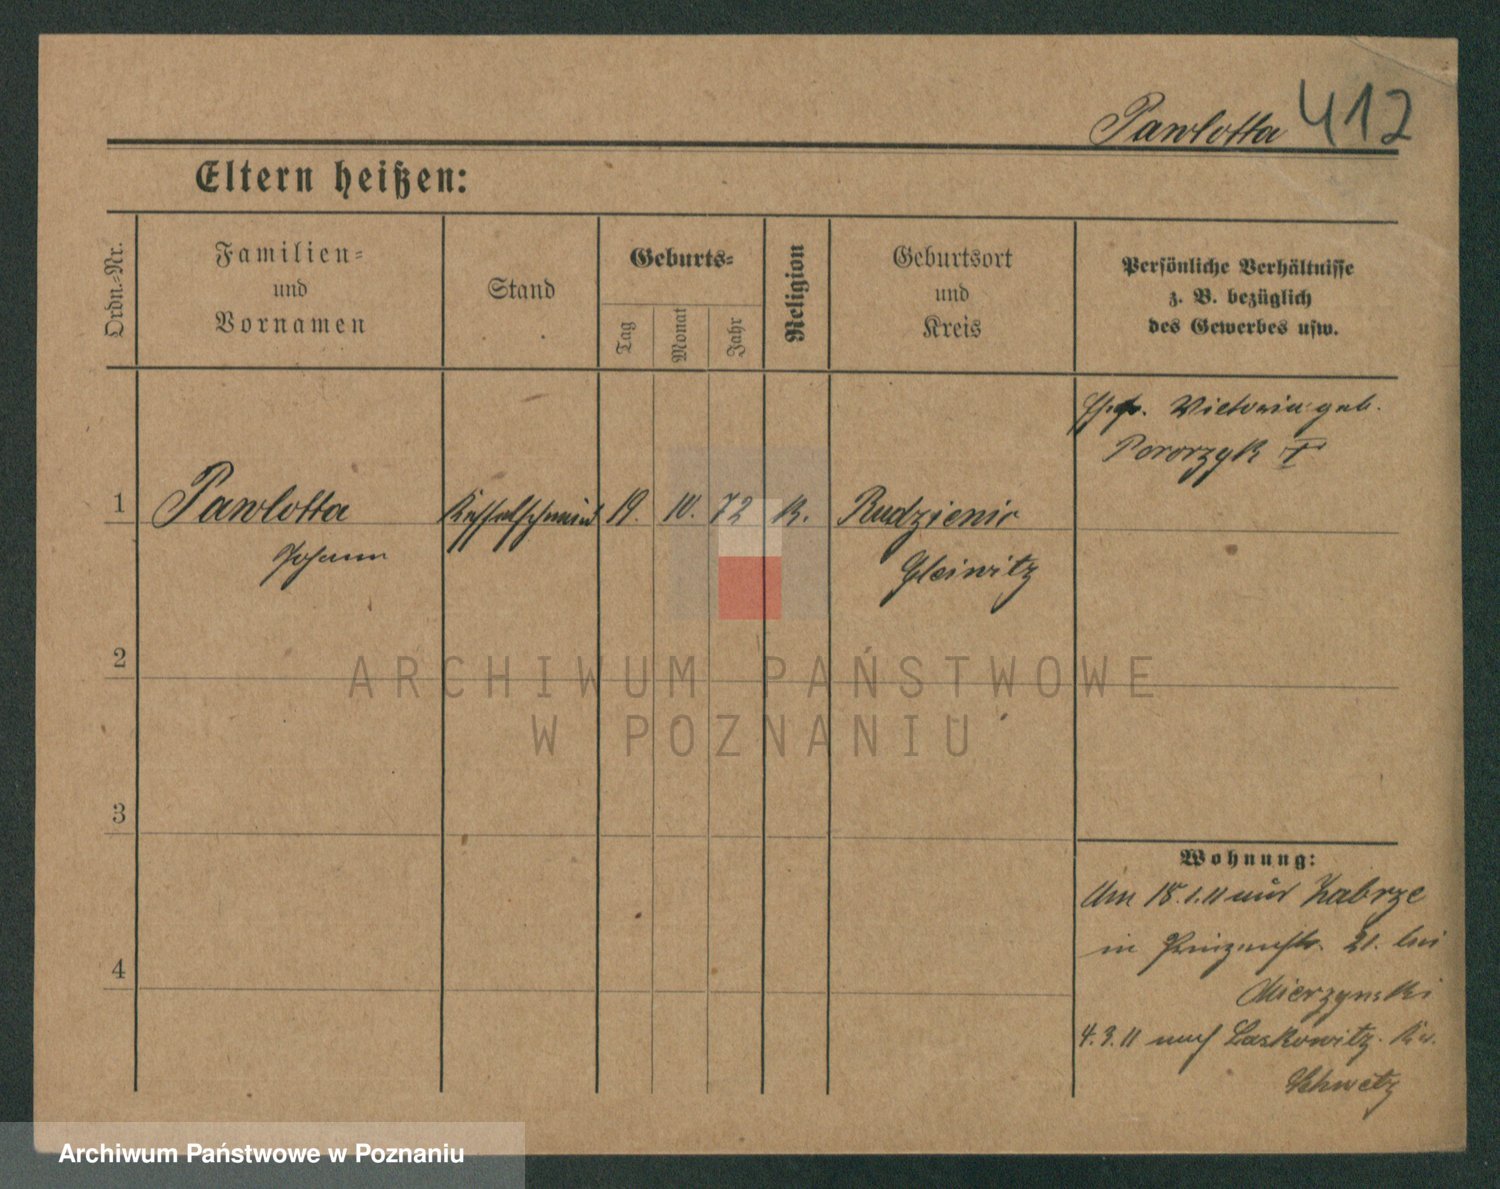 Pawlotta 412
Eltern heißen:
Ordn.-Nr.
Familien-
und
Vornamen
Stand
Geburts-
Tag
Monat
Jahr
Religion
Geburtsort
und
Kreis
Persönliche Verhältnisse
z. B. bezüglich
des Gewerbes usw.
Victoria geb.
1 Pawlotta Kesselschmied 19. 10. 72 K.
Johann
Gleiwitz
2
3
4
Wohnung:
Am 18.1.11 aus Zabrze
in Prinzenstr. 21. bei
Mierzynski
4.3.11 nach Laskowitz. Kr.
Schwetz
ARCHIWUM PAŃSTWOWE
W POZNANIU
Archiwum Państwowe w Poznaniu